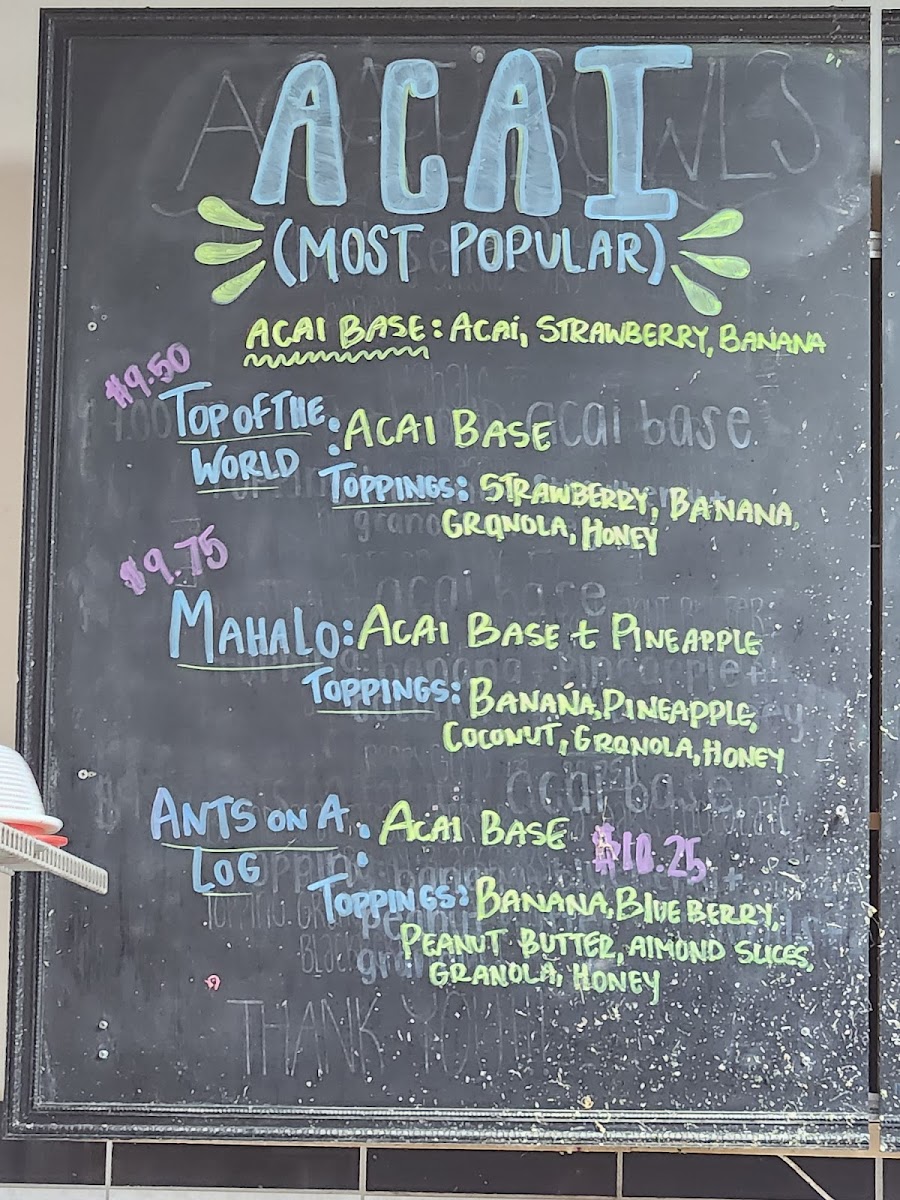 ACAI
(MOST POPULAR)
ACAI BASE: ACAI, STRAWBERRY, BANANA
$9.50
TOP OF THE WORLD: ACAI BASE
TOPPINGS: STRAWBERRY, BANANA,
GRANOLA, HONEY
$9.75
MAHALO: ACAI BASE + PINEAPPLE
TOPPINGS: BANANA, PINEAPPLE,
COCONUT, GRANOLA, HONEY
ANTS ON A LOG: ACAI BASE $10.25
TOPPINGS: BANANA, BLUEBERRY,
PEANUT BUTTER, ALMOND SLICES,
GRANOLA, HONEY
THANK YOU